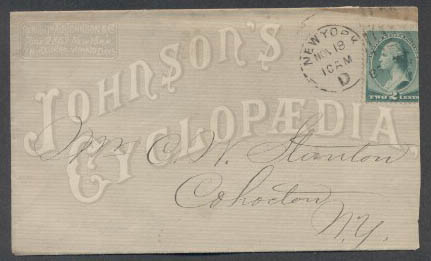 JOHNSON'S
CYCLOPÆDIA
NEW YORK
NOV 18
10 AM
D
TWO 2 CENTS
Mr C. W. Stanton
Cohocton
N.Y.